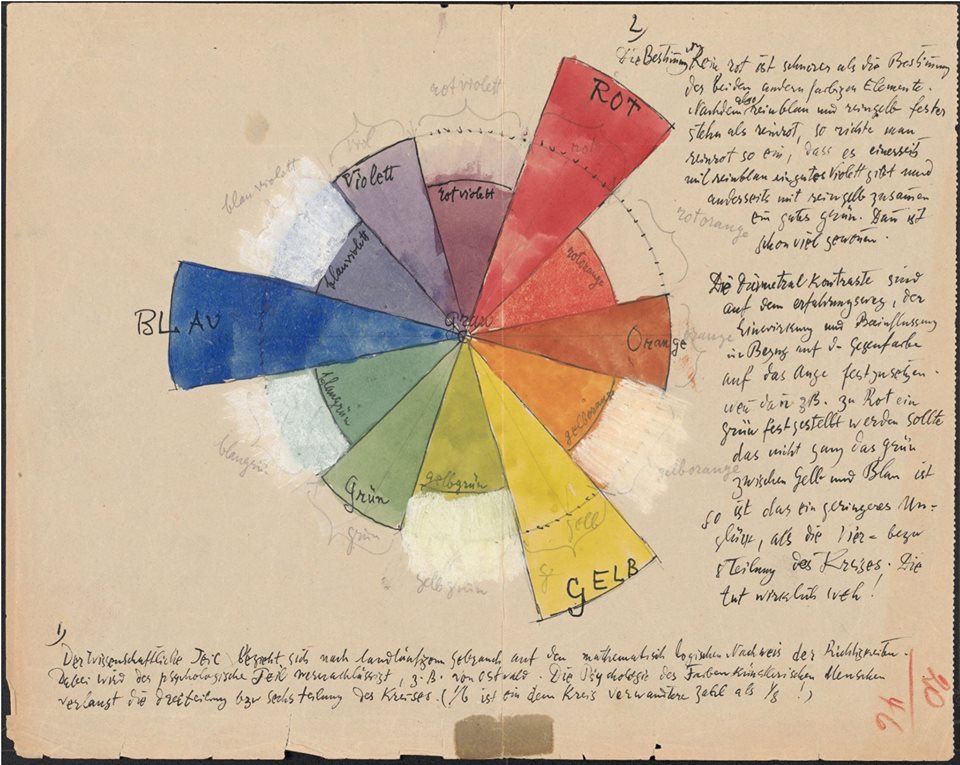 2)
Die Bestimmung Rein rot ist schwerer als die Bestimmung
der beiden andern farbigen Elemente.
Nachdem also reinblau und reingelb fester
stehn als reinrot, so richte man
reinrot so ein, dass es einerseits
mit reinblau ein gutes violett gibt und
anderseits mit reingelb zusammen
ein gutes grün. Dann ist
schon viel gewonnen.
Die diametral Kontraste sind
auf dem erfahrungsweg, der
Einwirkung und Beeinflussung
in Bezug auf d. Gegenfarbe
auf das Auge festzusetzen.
wenn dann z.B. zu Rot ein
grün festgestellt werden sollte
das nicht ganz das grün
zwischen Gelb und Blau ist
so ist das ein geringeres Un-
glück, als die Vier= bezw
8teilung des Kreises. Die
tut wirklich weh!
rotviolett
viol
rot
ROT
Violett
rotviolett
blauviolett
blauviolett
rotorange
rotorange
BLAU
Grau
Orange
orange
blaugrün
gelborange
blaugrün
gelborange
Grün
gelbgrün
grün
gelb
gelbgrün
GELB
1)
Der wissenschaftliche Teil bezieht sich nach landläufigem gebrauch auf den mathematisch logischen Nachweis der Richtigkeiten.
Dabei wird der psychologische Teil vernachlässigt, z.B. von Ostwald. Die Psychologie des Farbenkünstlerischen Menschen
verlangt die Dreiteilung bzw sechsteilung des Kreises. (1/6 ist ein dem Kreis verwandtere Zahl als 1/8 !)
20
46